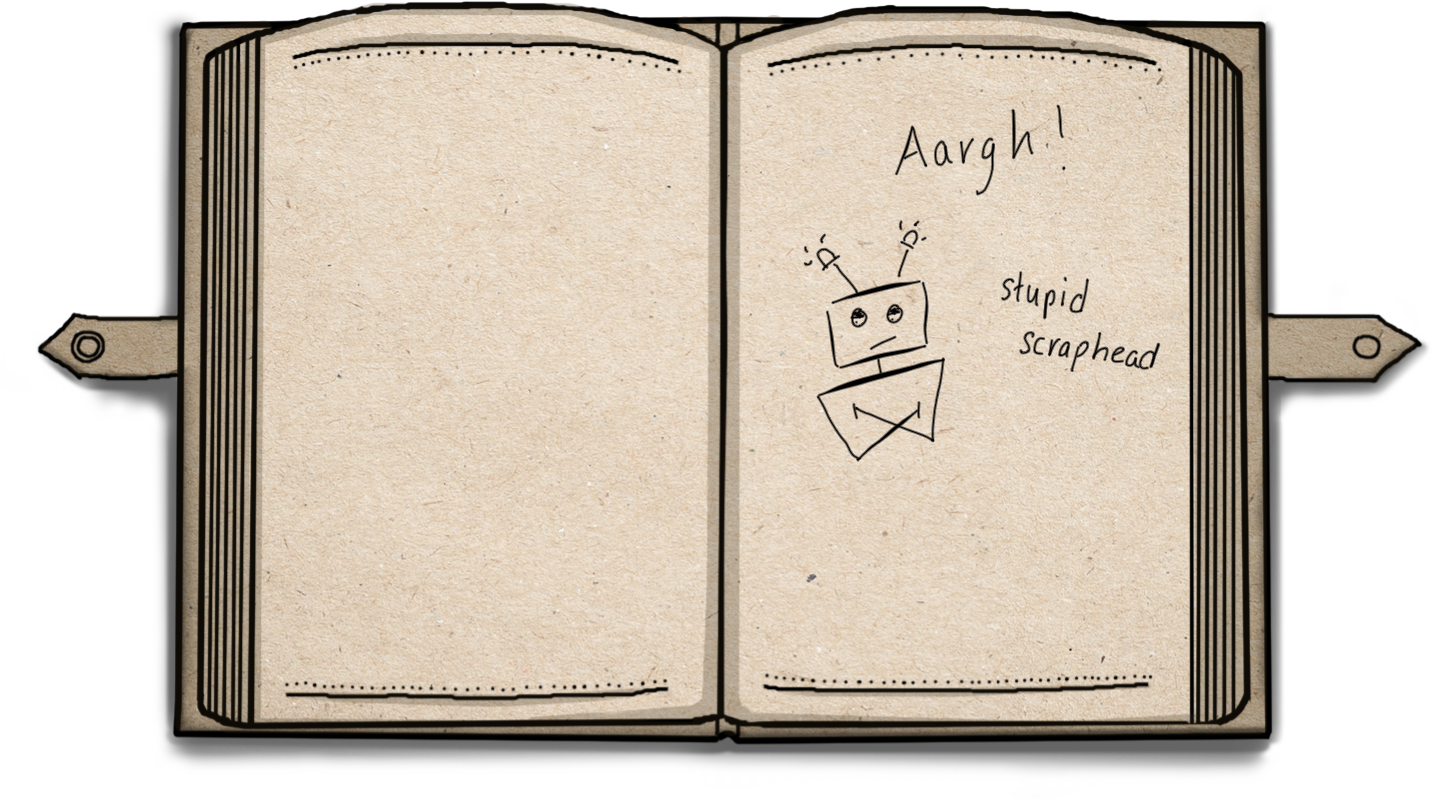 Aargh!
stupid
scraphead